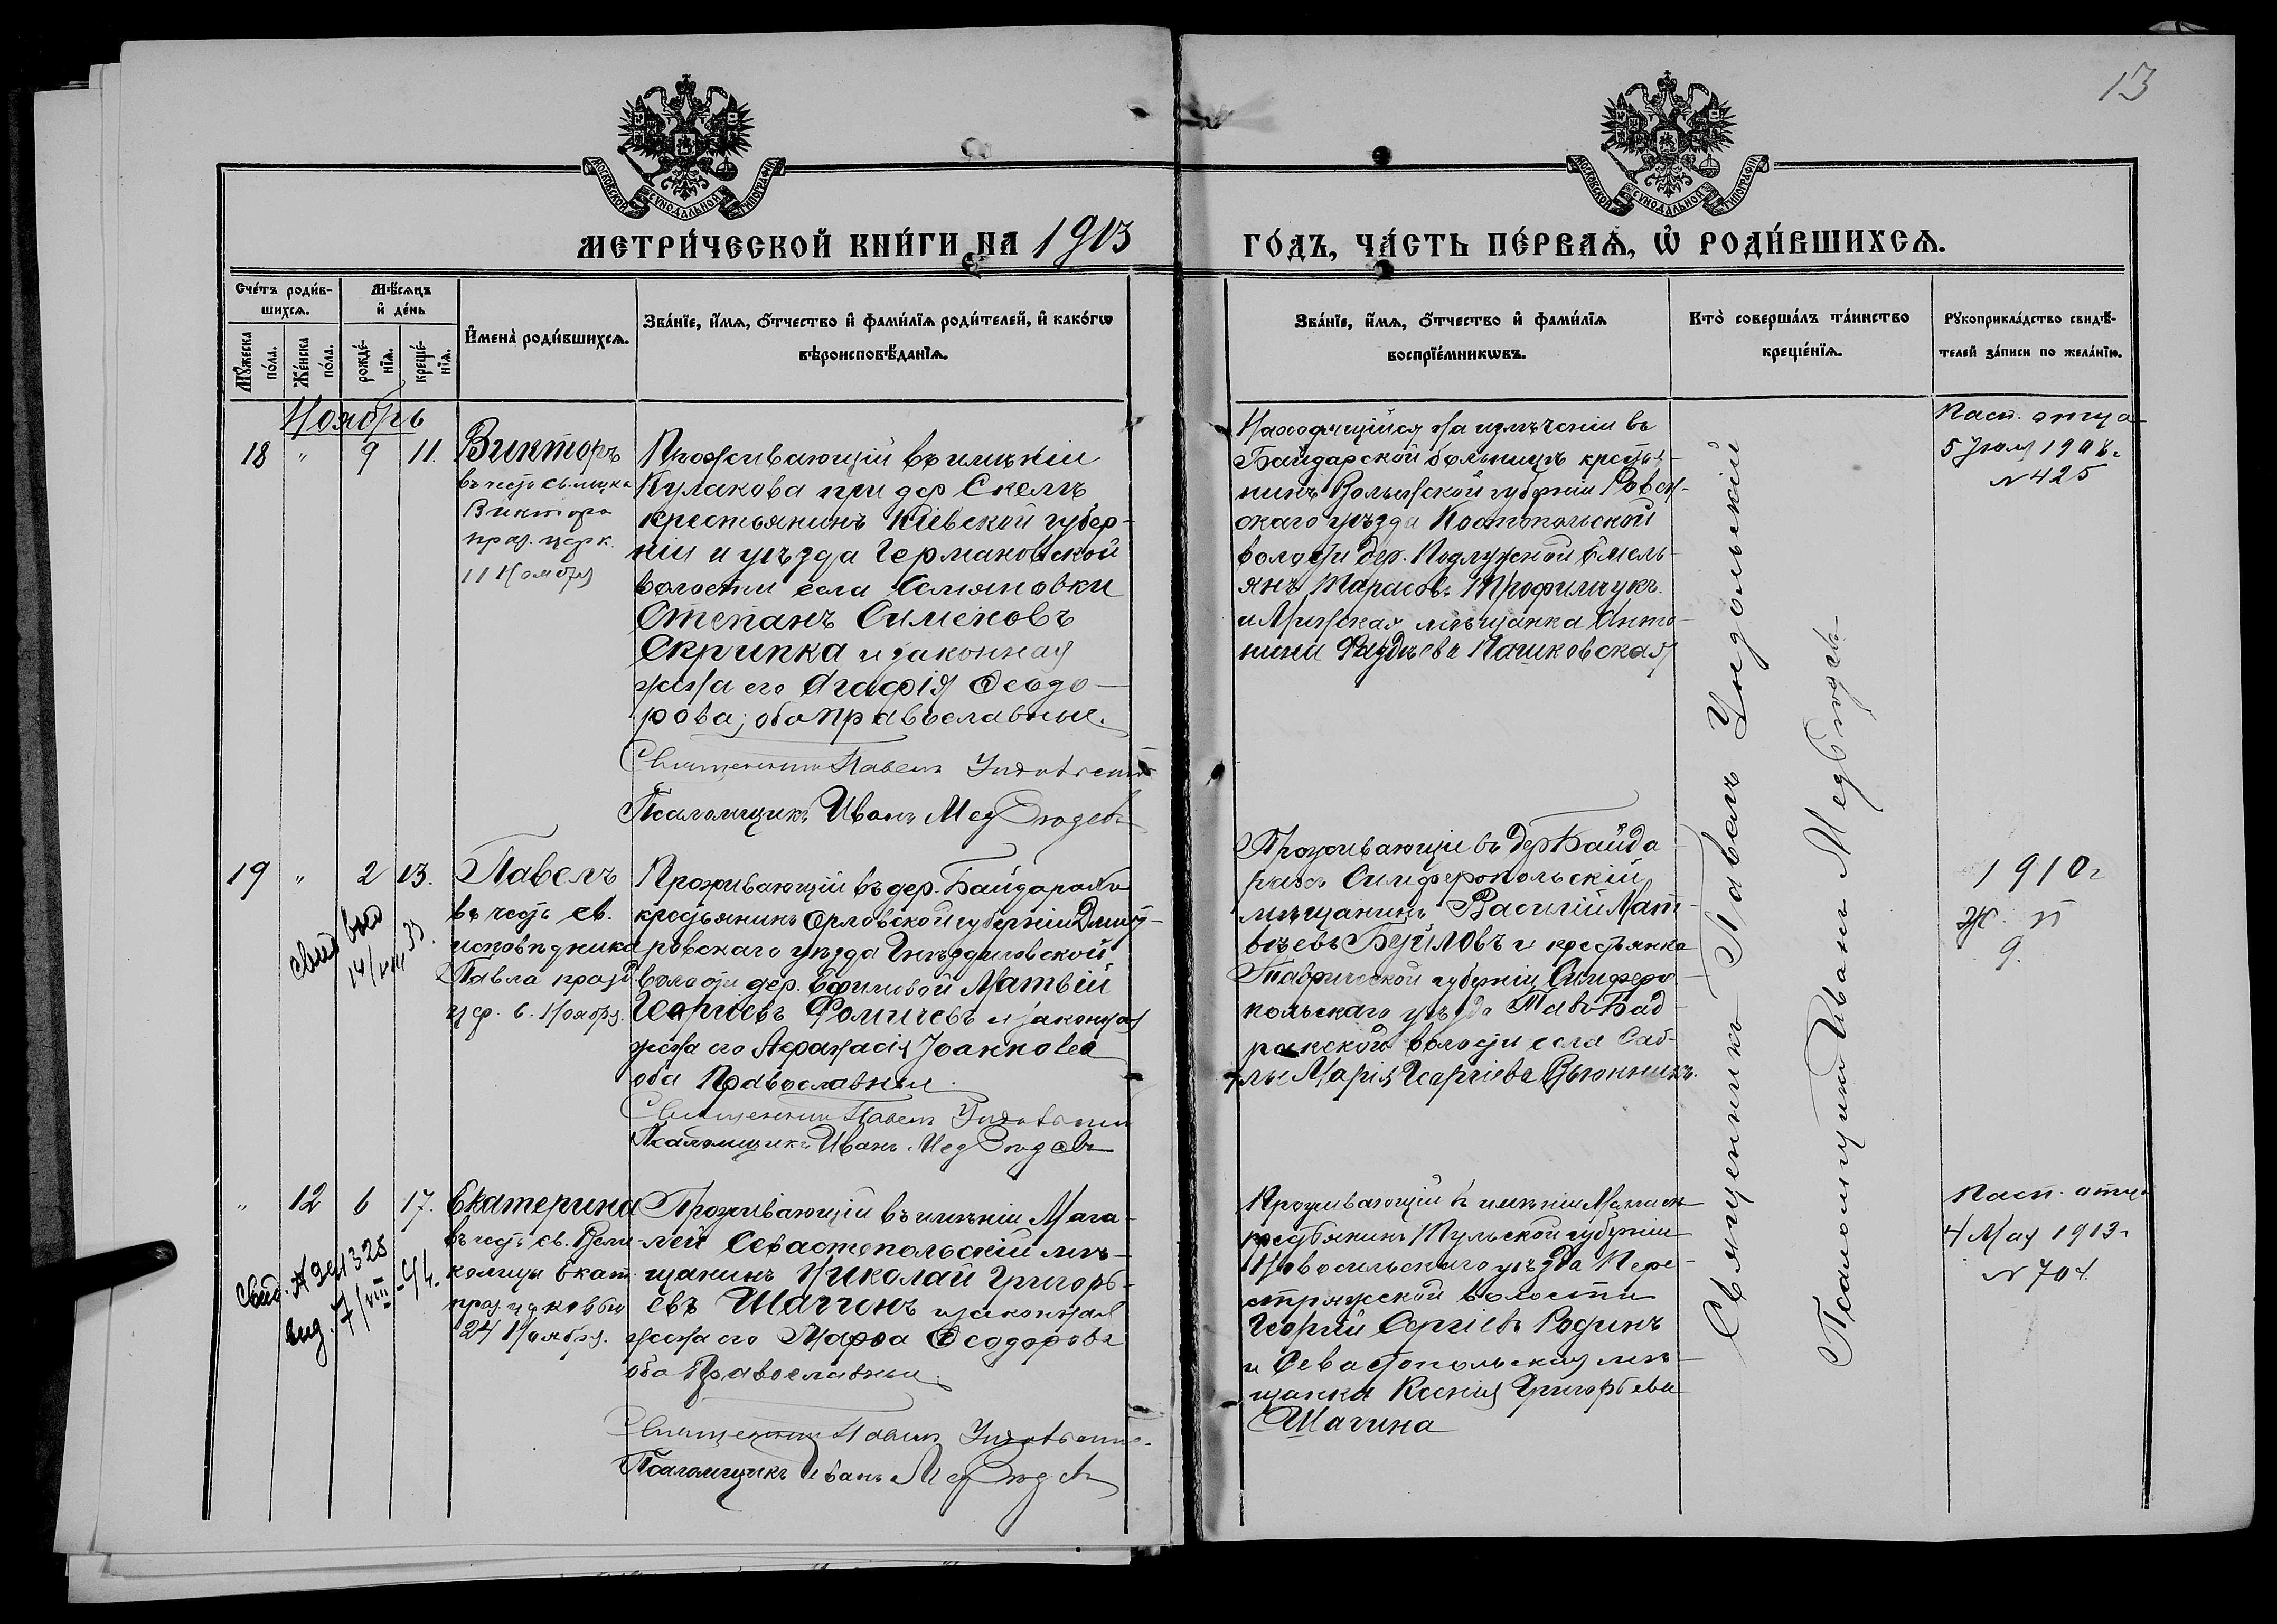 13
МОСКОВСКОЙ СУНОДАЛЬНОЙ ТИПОГРАФІИ
МОСКОВСКОЙ СУНОДАЛЬНОЙ ТИПОГРАФІИ
МЕТРИ́ЧЕСКОЙ КНИ́ГИ НА 1913
ГО́ДЪ, ЧА́СТЬ ПЕ́РВАѦ, Ѡ҆ РОДИ́ВШИХСѦ.
Сче́тъ роди́в-
шихсѧ.
Мѣ́сѧцъ
и҆ де́нь
Мꙋ́жеска по́ла.
Же́нска по́ла.
рожде́-
нїѧ.
креще́-
нїѧ.
И҆мена̀ роди́вшихсѧ.
Зва́нїе, и҆́мѧ, о҆́тчество и҆ фами́лїѧ роди́телей, и҆ како́гѡ
вѣроисповѣ́данїѧ.
Зва́нїе, и҆́мѧ, о҆́тчество и҆ фами́лїѧ
воспрїе́мникѡвъ.
Кто̀ соверша́лъ та́инство
креще́нїѧ.
Рꙋкоприкла́дство свидѣ́-
телей за́писи по жела́нїю.
Ноябрь
18 " 9 11.
Викторъ
въ честь св. мучка
Виктора
праз. церк.
11 Ноября
Проживающій въ имѣніи
Кулакова при дер Скеля
крестьянинъ Кіевской губер-
ніи и уѣзда Германовской
волости села Семяновки
Степанъ Сименовъ
Скрипка и законная
жена его Агафія Ѳеодо-
рова; оба православные.
Священникъ Павелъ Ундольскій
Псаломщикъ Иванъ Медвѣдевъ
Находящійся на излѣченіи въ
Байдарской больницѣ кресть-
янинъ Волынской губерніи Ровен-
скаго уѣзда Костопольской
волости дер. Подлужной Емель-
янъ Тарасовъ Трофимчукъ
и Минская мѣщанка Анто-
нина Фаддѣева Пашковская
Пасп. отца
5 Іюля 1908г
№ 425
19 " 2 13.
Павелъ
въ честь св.
исповѣдника
Павла празд.
цер. 6. Ноября.
Проживающій въ дер. Байдарахъ
крестьянинъ Орловской губерніи Дмит-
ровскаго уѣзда Гнѣздиловской
волости дер. Ефимовой Матвій
Георгіевъ Фомичевъ и законная
жена его Афанасія Іоаннова
оба Православные.
Священникъ Павелъ Ундольскій
Псаломщикъ Иванъ Медвѣдевъ
Проживающіе въ дер Байда-
рахъ Симферопольскій
мѣщанинъ Василій Мат-
вѣевъ Буйловъ и крестьянка
Таврической губерніи Симферо-
польскаго уѣзда Тавъ-Бад-
ракской волости села Саб-
лы Марія Георгіева Вьюнникъ.
1910г
Ж. П
9.
свид выд
14/VIII 33.
" 12 6 17.
Екатерина
въ честь св. Вели-
комуц Екат.
праз. церковью
24 Ноября.
Проживающій въ имѣніи Мага-
лей Севастопольскій мѣ-
щанинъ Николай Григорь-
евъ Шагинъ и законная
жена его Марѳа Ѳеодорова
оба Православные.
Священникъ Павелъ Ундольскій
Псаломщикъ Иванъ Медвѣдевъ
Проживающій въ имѣніи
крестьянинъ Тульской губерніи
Новосильскаго уѣзда Пере-
стряжской волости
Георгій Сергіевъ Родинъ
и Севастопольская мѣ-
щанка Ксенія Григорьева
Шагина
Пасп. отца
4 Мая 1913г
№ 704.
свид.
выд. 7/VIII-44.
Священникъ Павелъ Ундольскій
Псаломщикъ Иванъ Медвѣдевъ